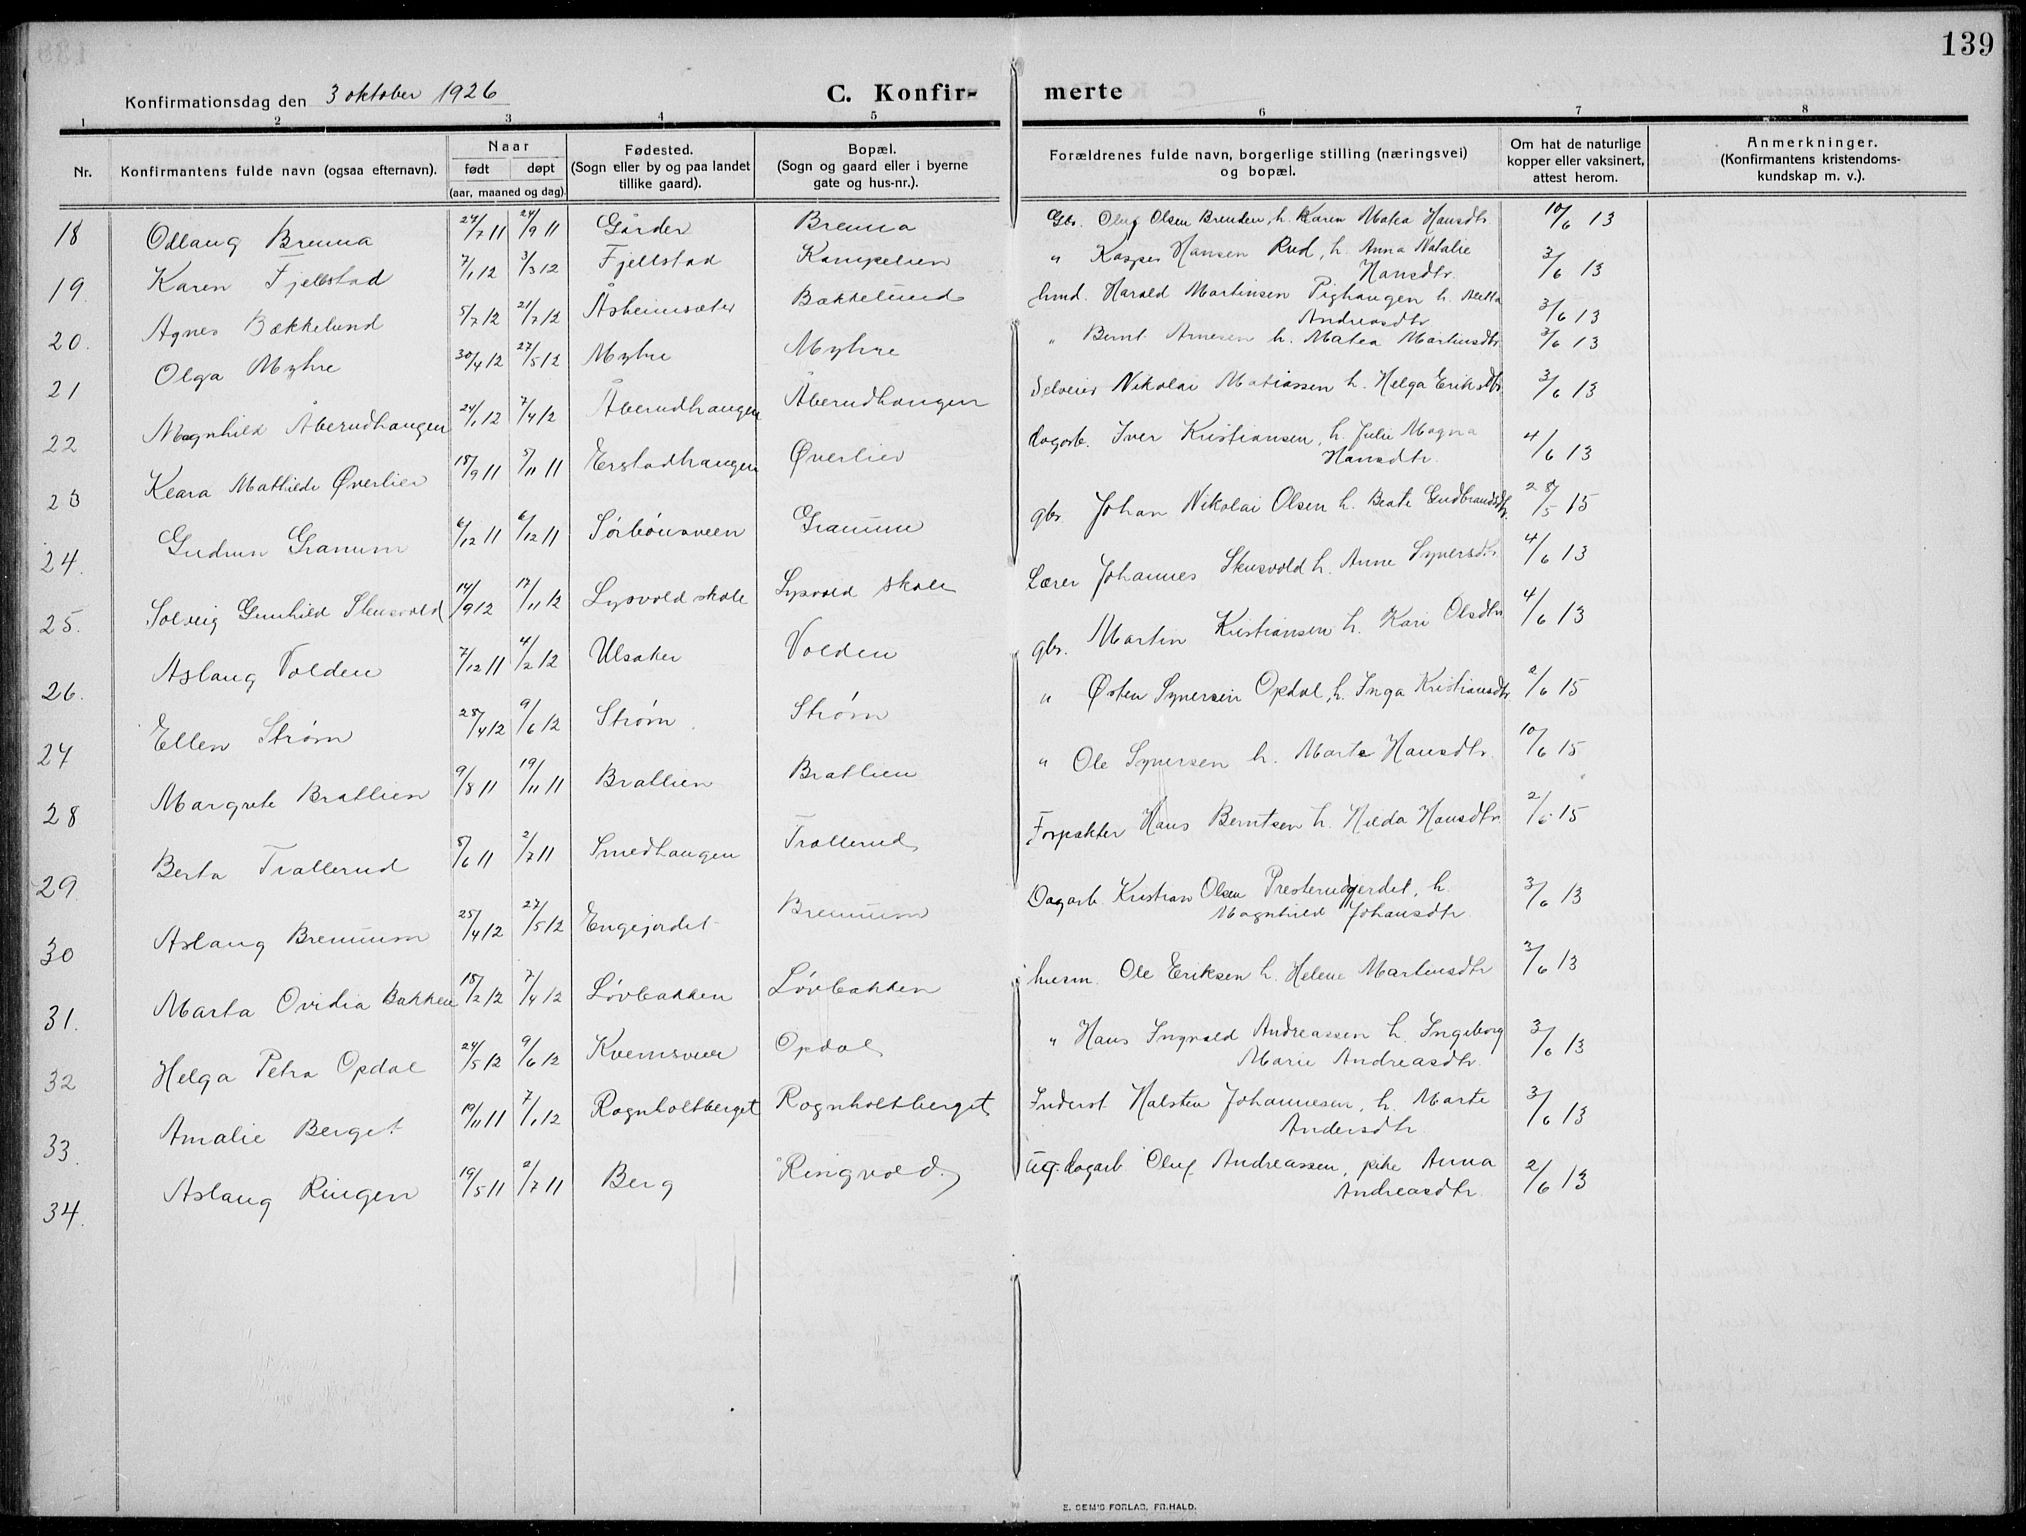 139
Konfirmationsdag den 3 oktober 1926 C. Konfir- merte
1 2 3 4 5 6 7 8
Nr. Konfirmantens fulde navn (ogsaa efternavn). Naar født døpt (aar, maaned og dag). Fødested. (Sogn eller by og paa landet tillike gaard). Bopæl. (Sogn og gaard eller i byerne gate og hus-nr.). Forældrenes fulde navn, borgerlige stilling (næringsvei) og bopæl. Om hat de naturlige kopper eller vaksinert, attest herom. Anmerkninger. (Konfirmantens kristendoms- kundskap m. v.).
18 Odlaug Brenna 24/7 11 24/9 11 Gårder Brenna Gbr. Oluf Olsen Brenden, h. Karen Matea Hansdtr 10/6 13
19. Karen Fjellstad 7/1 12 3/3 12 Fjellstad Kampelien " Kasper Hansen Rud, h. Anna Natalie Hansdtr. 3/6 13
20. Agnes Bækkelund 5/7 12 21/7 12 Åsheimsæter Bækkelund husd. Harald Martinsen Pighaugen h. Aletta Andreasdtr 3/6 13
21 Olga Myhre 30/4 12 27/5 12 Myhre Myhre " Bernt Arnesen h. Matea Martinsdtr. 3/6 13
22 Magnhild Åberudhaugen 24/1 12 7/4 12 Åberudhaugen Åberudhaugen Selveier Nikolai Matiassen h. Helga Eriksdtr. 3/6 13
23 Klara Mathilde Øverlier 18/9 11 5/11 11 Erstadhaugen Øverlier dagarb. Iver Kristiansen, h. Julie Magna Hansdtr. 4/6 13
24. Gudrun Granum 6/12 11 6/12 11 Sørbønsveen Granum gbr. Johan Nikolai Olsen h. Beate Gudbrandsdtr. 28/5 15
25. Solveig Gunhild Skusvold 14/9 12 17/11 12 Lysvold skole Lysvold skole Lærer Johannes Skusvold h. Anne Syversdtr 4/6 13
26. Aslaug Volden 7/12 11 4/2 12 Ulsaker Volden gbr. Martin Kristiansen h. Kari Olsdtr. 4/6 13
27 Ellen Strøm 28/4 12 9/6 12 Strøm Strøm " Østen Syversen Opdal, h. Inga Kristiansdtr 2/6 15
28 Margrete Bratlien 9/8 11 19/11 11 Bratlien Bratlien " Ole Syversen h. Marte Hansdtr. 10/6 15
29. Berta Trallerud 5/6 11 2/7 11 Smedhaugen Trallerud Forpakter Hans Berntsen h. Hilda Hansdtr. 2/6 15
30 Aslaug Brennum 25/4 12 27/5 12 Engejordet Brennum Dagarb. Kristian Olsen Presterudjerdet, h. Magnhild Johansdtr 3/6 13
31. Marta Ovidia Bakken 18/2 12 7/4 12 Løvbakken Løvbakken husm. Ole Eriksen h. Helene Martinsdtr 3/6 13
32 Helga Petra Opdal 24/5 12 9/6 12 Kvernsveer Opdal " Hans Ingvald Andreassen h. Ingeborg Marie Andreasdtr. 3/6 13
33. Amalie Berget 19/11 11 7/1 12 Rognholtberget Rognholtberget Inderst Halsten Johannesen, h. Marte Andersdtr. 3/6 13
34. Aslaug Ringen 19/5 11 2/7 11 Berg Ringvold. Ug. dagarb. Oluf Andreassen, pike Anna Andreasdtr. 2/6 13
E. SEM'S FORLAG, FR.HALD.